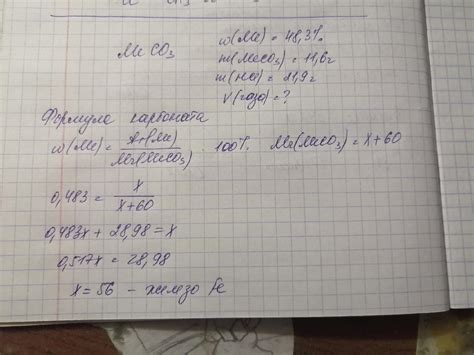 MeCO3
w(Me) = 48,3%
m(MeCO3) = 11,6г
m(HCl) = 21,9г
V(газа) = ?
Формула карбоната
w(Me) = Ar(Me) / Mr(MeCO3) · 100% Mr(MeCO3) = x + 60
0,483 = x / x+60
0,483x + 28,98 = x
0,517x = 28,98
x = 56 – железо Fe